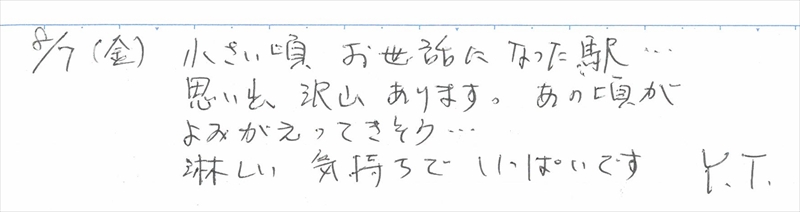 8/7(金) 小さい頃 お世話になった駅…
思い出 沢山 あります。あの頃が
よみがえってきそう…
淋しい 気持ちで いっぱいです Y.T.